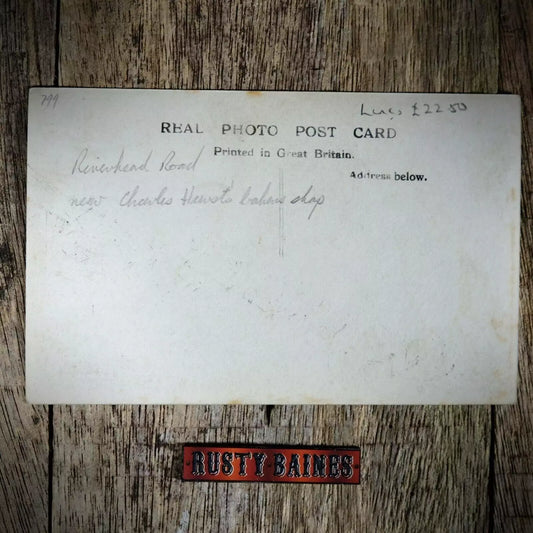 799
Lincs £22.50
REAL PHOTO POST CARD
Printed in Great Britain.
Address below.
Riverhead Road
near Charles Hewst's bakers shop
RUSTY·BAINES